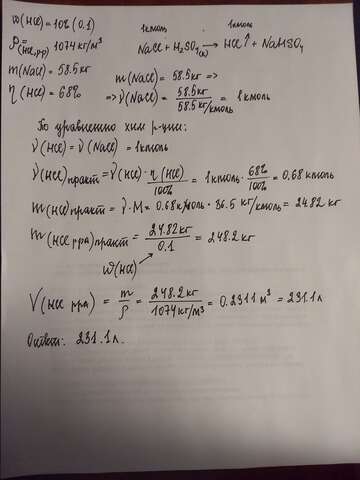 ω(HCl) = 10% (0.1)
ρ(HCl р-р) = 1074 кг/м³
m(NaCl) = 58.5 кг
η(HCl) = 68%
1 кмоль 1 кмоль
NaCl + H₂SO₄(к) → HCl↑ + NaHSO₄
m(NaCl) = 58.5 кг =>
=> ν(NaCl) = 58.5 кг / 58.5 кг/кмоль = 1 кмоль
По уравнению хим р-ции:
ν(HCl) = ν(NaCl) = 1 кмоль
ν(HCl)практ = ν(HCl) · η(HCl)/100% = 1 кмоль · 68%/100% = 0.68 кмоль
m(HCl)практ = ν · M = 0.68 кмоль · 36.5 кг/кмоль = 24.82 кг
m(HCl рра)практ = 24.82 кг / 0.1 = 248.2 кг
ω(HCl)
V(HCl рра) = m/ρ = 248.2 кг / 1074 кг/м³ = 0.2311 м³ = 231.1 л
Ответ: 231.1 л.